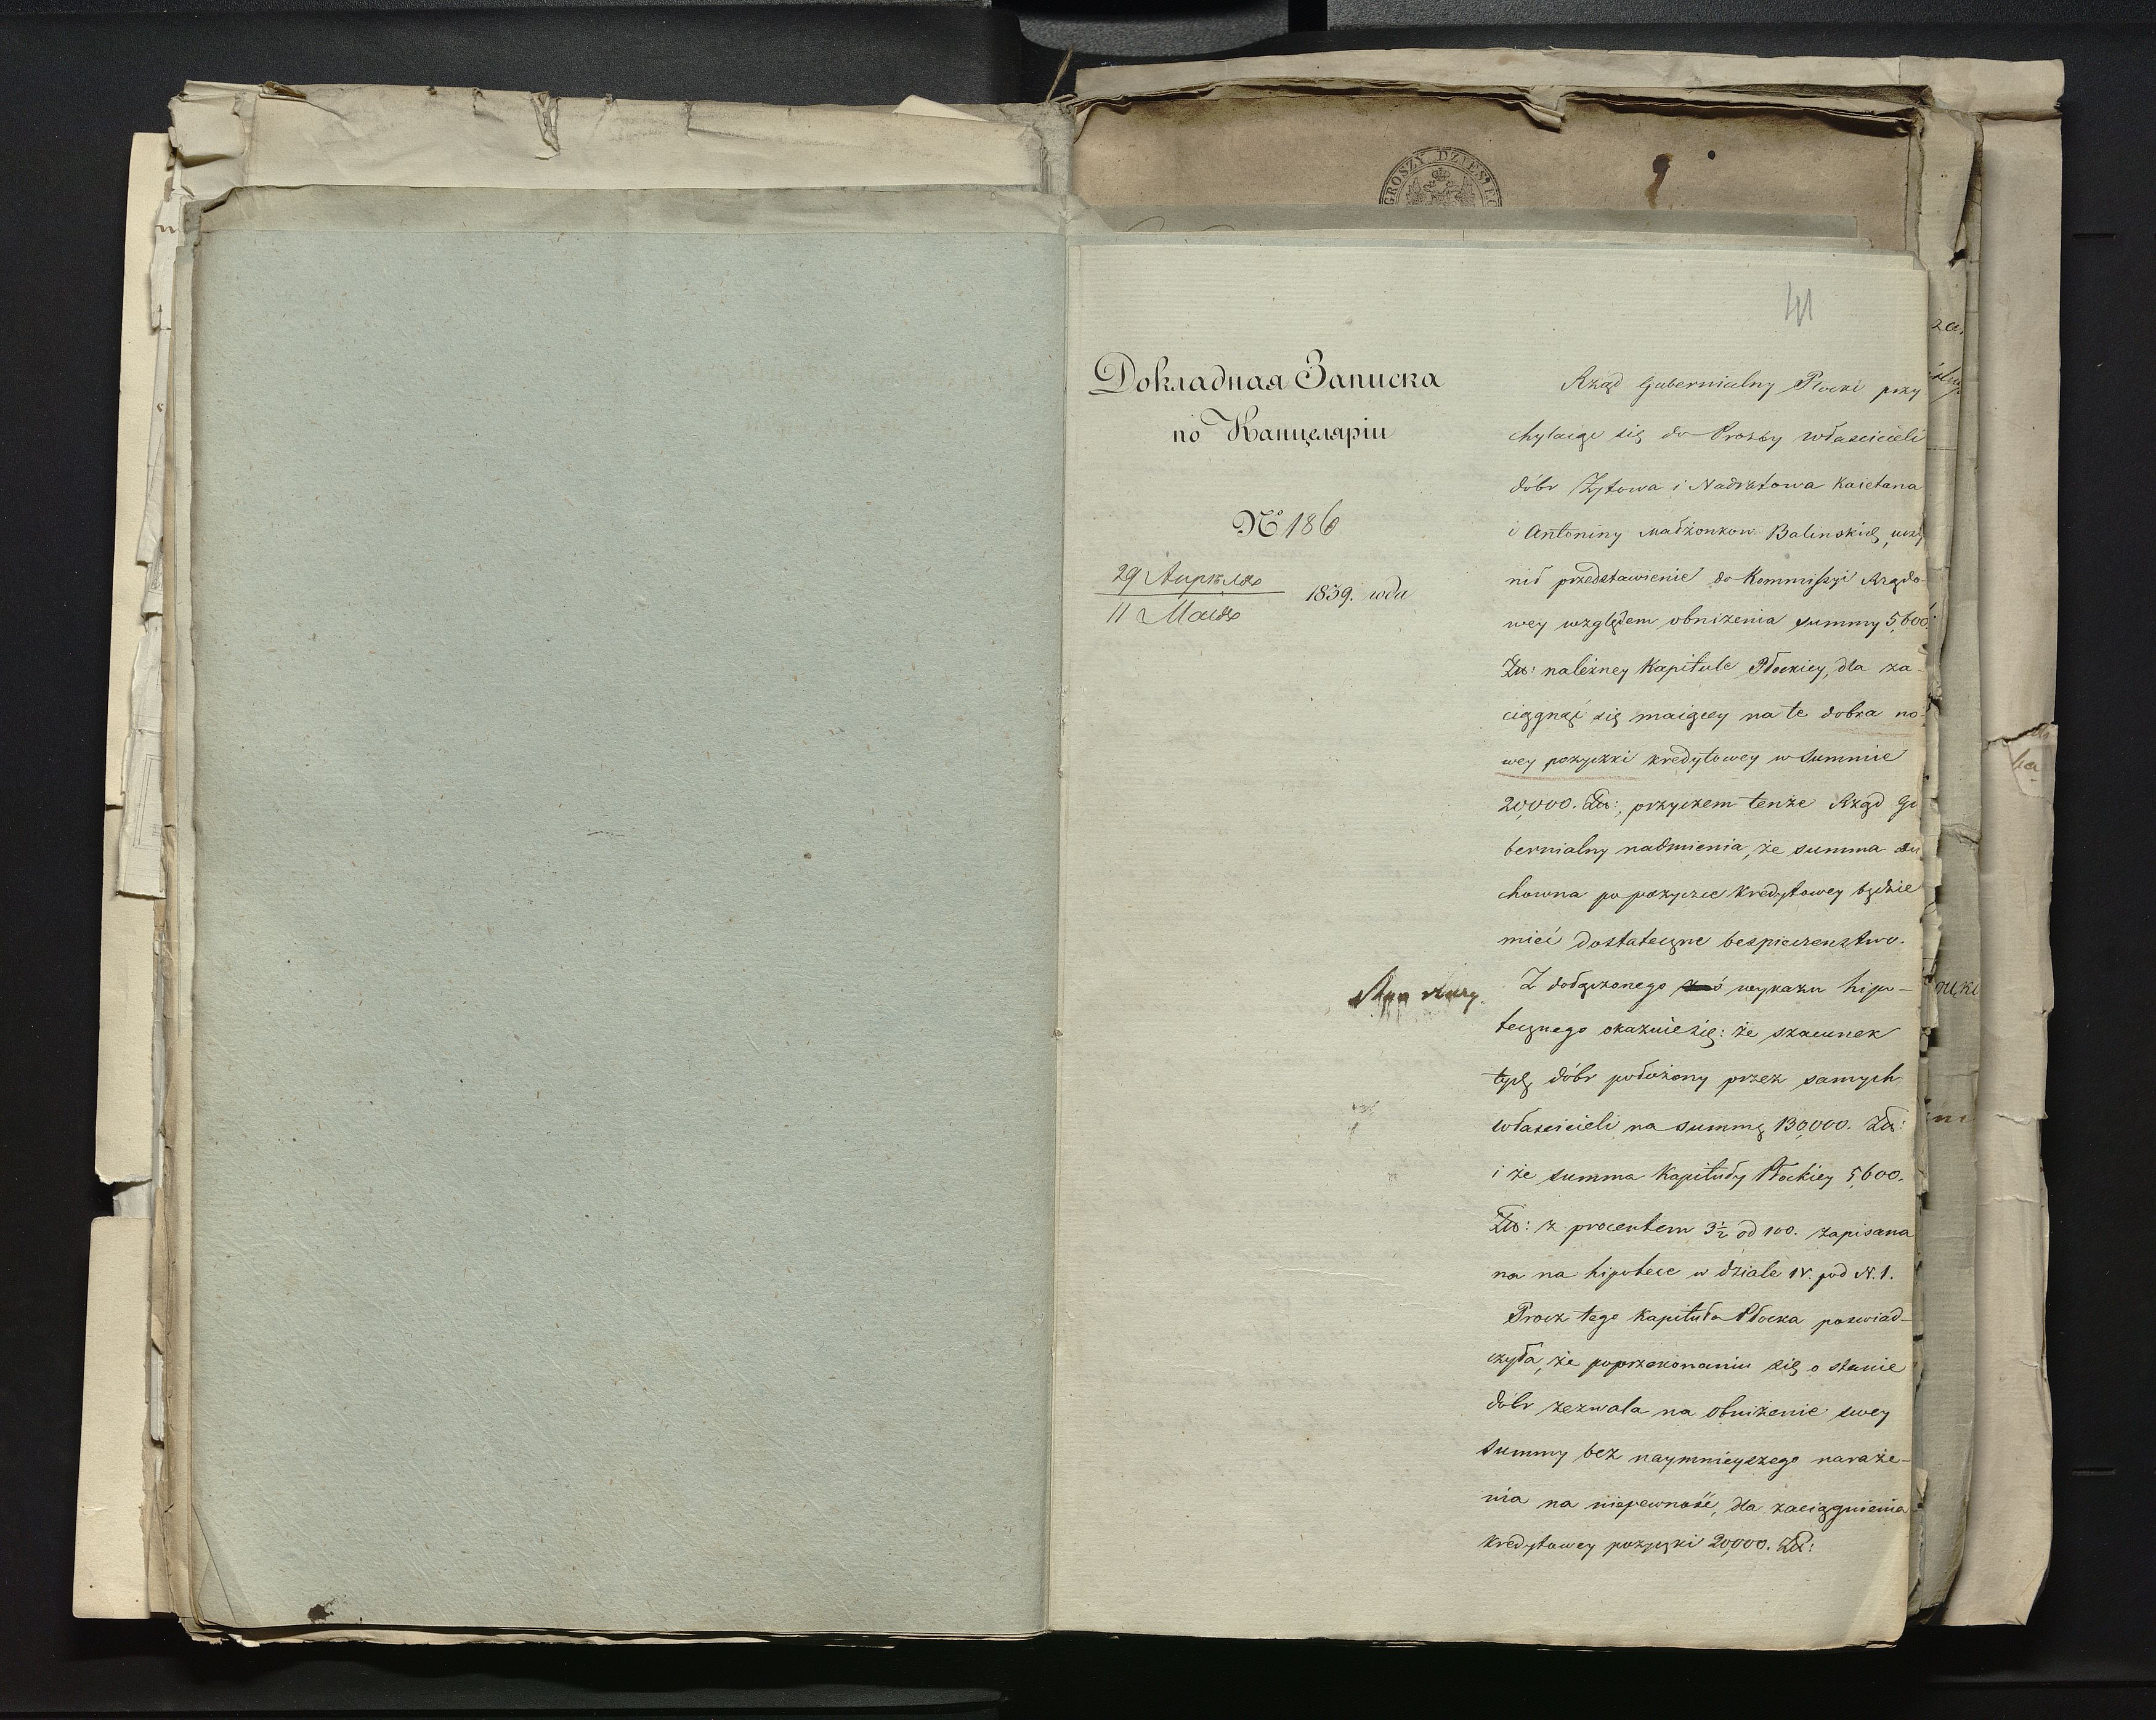 GROSZY DZIESIĘĆ
41
Докладная Записка
по Канцеляріи
№ 186
29 Апрѣля
11 Маія
1839. года
Rząd Gubernialny Płocki przy
chylaiąc się do Prozby własccicieli
dóbr Żytowa i Nadratowa Kaietana
i Antoniny Małżonkow Balinskich, uczy
nił przedstawienie do Kommissyi Rządo-
wey względem obniżenia summy 5,600.
Zł: należney Kapitule Płockiey, dla za-
ciągnąć się maiącey na te dobra no-
wey pozyczki kredytowey w Summie
20,000. Zł:, przyczem tenże Rząd Gu
bernialny nadmienia, że summa du
chowna po pozyczce kredytowey będzie
mieć dostateczne bespieczenstwo.
Z dołączonego wykazu hipo-
tecznego okazuie się: że szacunek
tych dóbr położony przez samych
własccicieli na summę 130,000. Zł:
i że summa Kapituły Płockiey 5,600.
Zł: z procentem 3½ od 100. zapisana
na na hipotece w dziale IV. pod N. 1.
Procz tego Kapituła Płocka poswiad-
czyła, że po przekonaniu się o stanie
dóbr zezwala na obniżenie swey
summy bez naymnieyszego naraże-
nia na niepewność, dla zaciągnienia
kredytowey pozyczki 20,000. Zł: